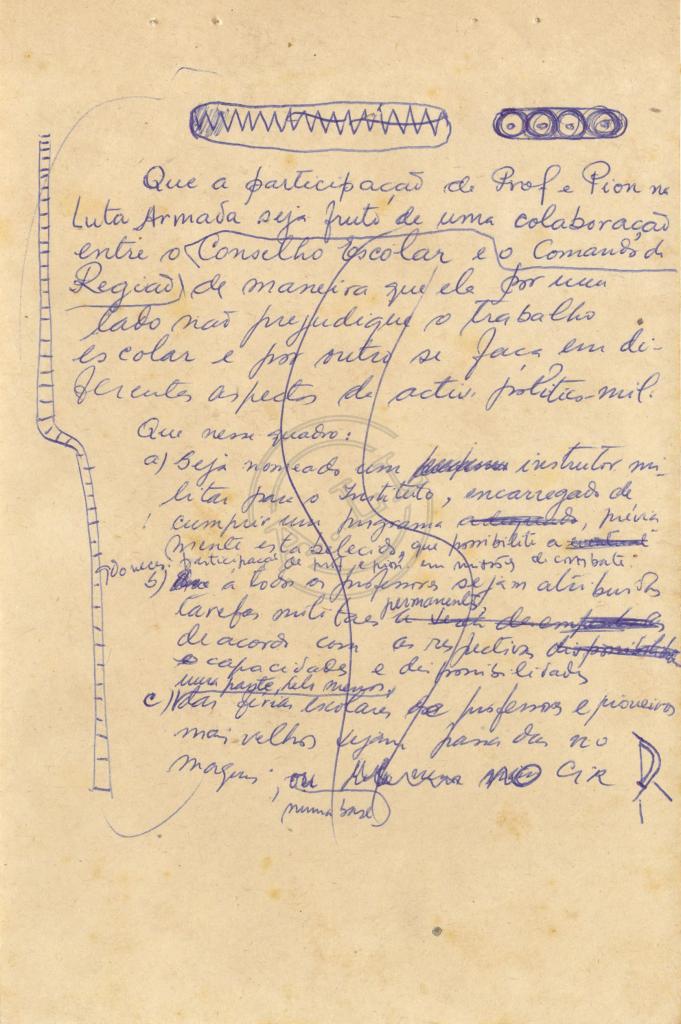 Que a participação de Prof e Pion na
Luta Armada seja fruto de uma colaboração
entre o (Conselho Escolar e o Comando da
Região) de maneira que ela por um
lado não prejudique o trabalho
escolar e por outro se faça em di-
ferentes aspectos de activ. político-mil.
Que nesse quadro:
a) Seja nomeado um instrutor mi-
litar para o Instituto, encarregado de
cumprir um programa adequado, prévia
mente estabelecido, que possibilite a eventual
participação de prof. e pion. em missões de combate.
b) a todos os professores sejam atribuidas
tarefas militares permanentes
de acordo com as respectivas disponibilidades
e capacidades e disponibilidades
uma parte, pelo menos,
c) das férias escolares professores e pioneiros
mais velhos sejam passadas no
maqui, ou no CIR
(numa base)